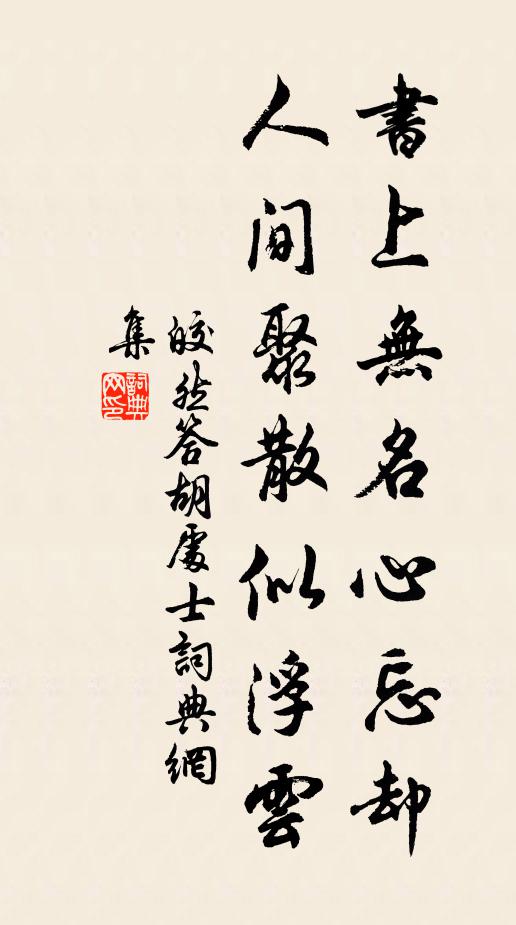 書上無名心忘却
人間聚散似浮雲
皎然答胡處士詞典網
集
詞典
网印